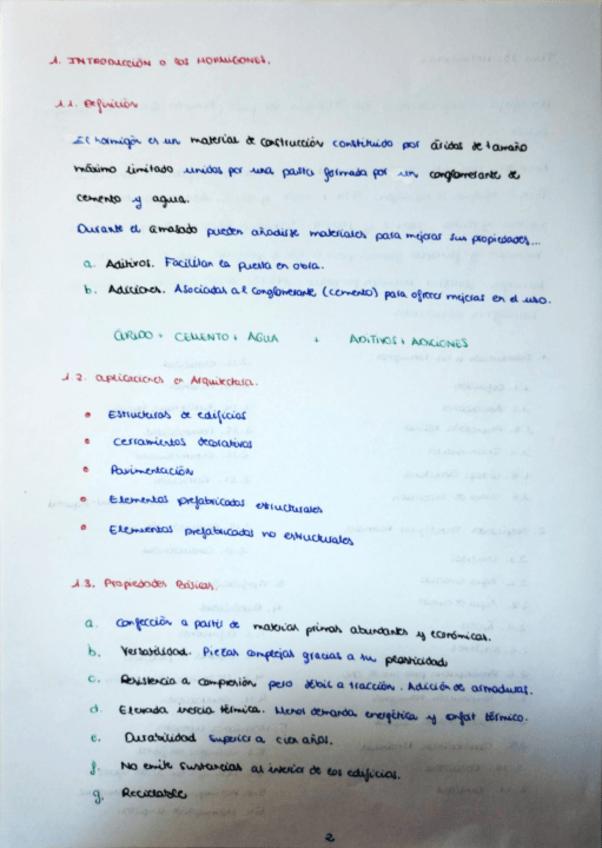 1. INTRODUCCIÓN a los HORMIGONES.
1.1. Definición
El hormigón es un material de construcción constituido por áridos de tamaño
máximo limitado unidos por una pasta formada por un conglomerante de
cemento y agua.
Durante el amasado pueden añadirse materiales para mejorar sus propiedades...
a. Aditivos. Facilitan la puesta en obra.
b. Adiciones. Asociadas al conglomerante (cemento) para ofrecer mejoras en el uso.
ÁRIDO + CEMENTO + AGUA + ADITIVOS + ADICIONES
1.2. Aplicaciones en Arquitectura.
• Estructuras de edificios
• Cerramientos decorativos
• Pavimentación
• Elementos prefabricados estructurales
• Elementos prefabricados no estructurales
1.3. Propiedades Básicas.
a. Confección a partir de materias primas abundantes y económicas.
b. Versatilidad. Piezas complejas gracias a su plasticidad
c. Resistencia a compresión, pero débil a tracción. Adición de armaduras.
d. Elevada inercia térmica. Menor demanda energética y térmico.
e. Durabilidad superior a cien años.
f. No emite sustancias al interior de los edificios.
g. Reciclable
2